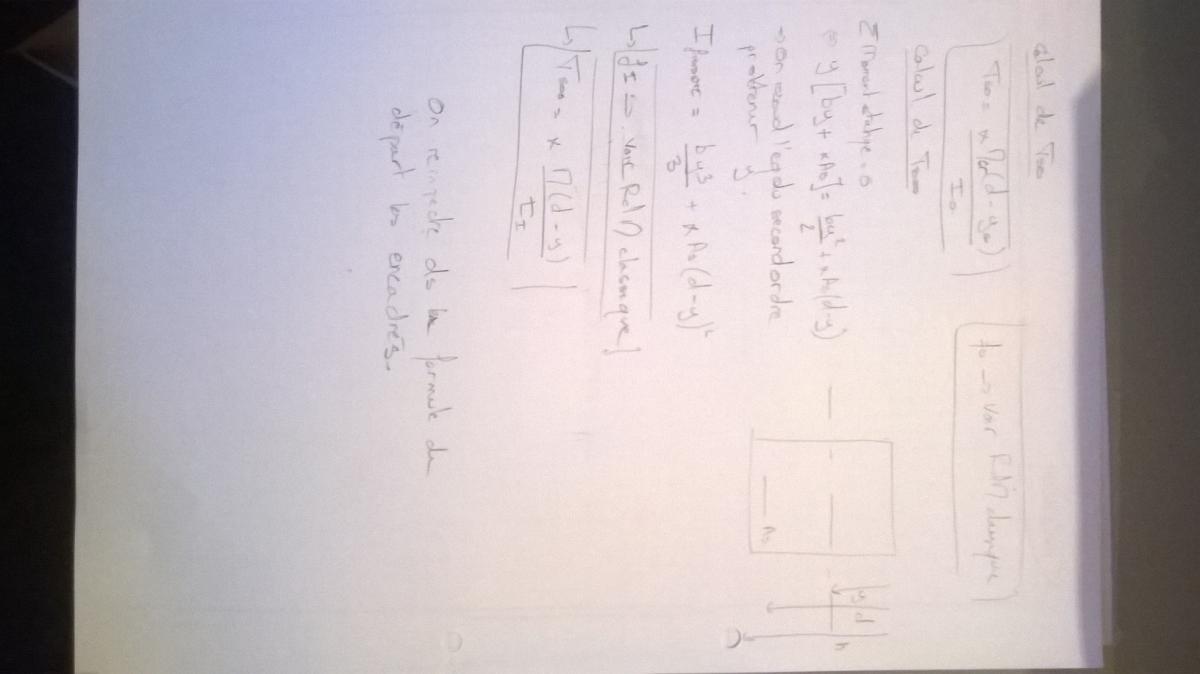 Calcul de
= α M (d - y₀)
I₀
f₀ → voir RdM classique
Calcul de
Σ Moment statique = 0
⇔ y [by + αA₀] = by²/2 + αA₀(d-y)
→ On resoud l'eq du second ordre
pr obtenir y.
I = by³/3 + αA₀(d-y)²
↳ f I → voir RdM classique
↳ = α M(d-y)
I I
On reinjecte ds la formule de
départ les encadrés.
y
d
h
A₀